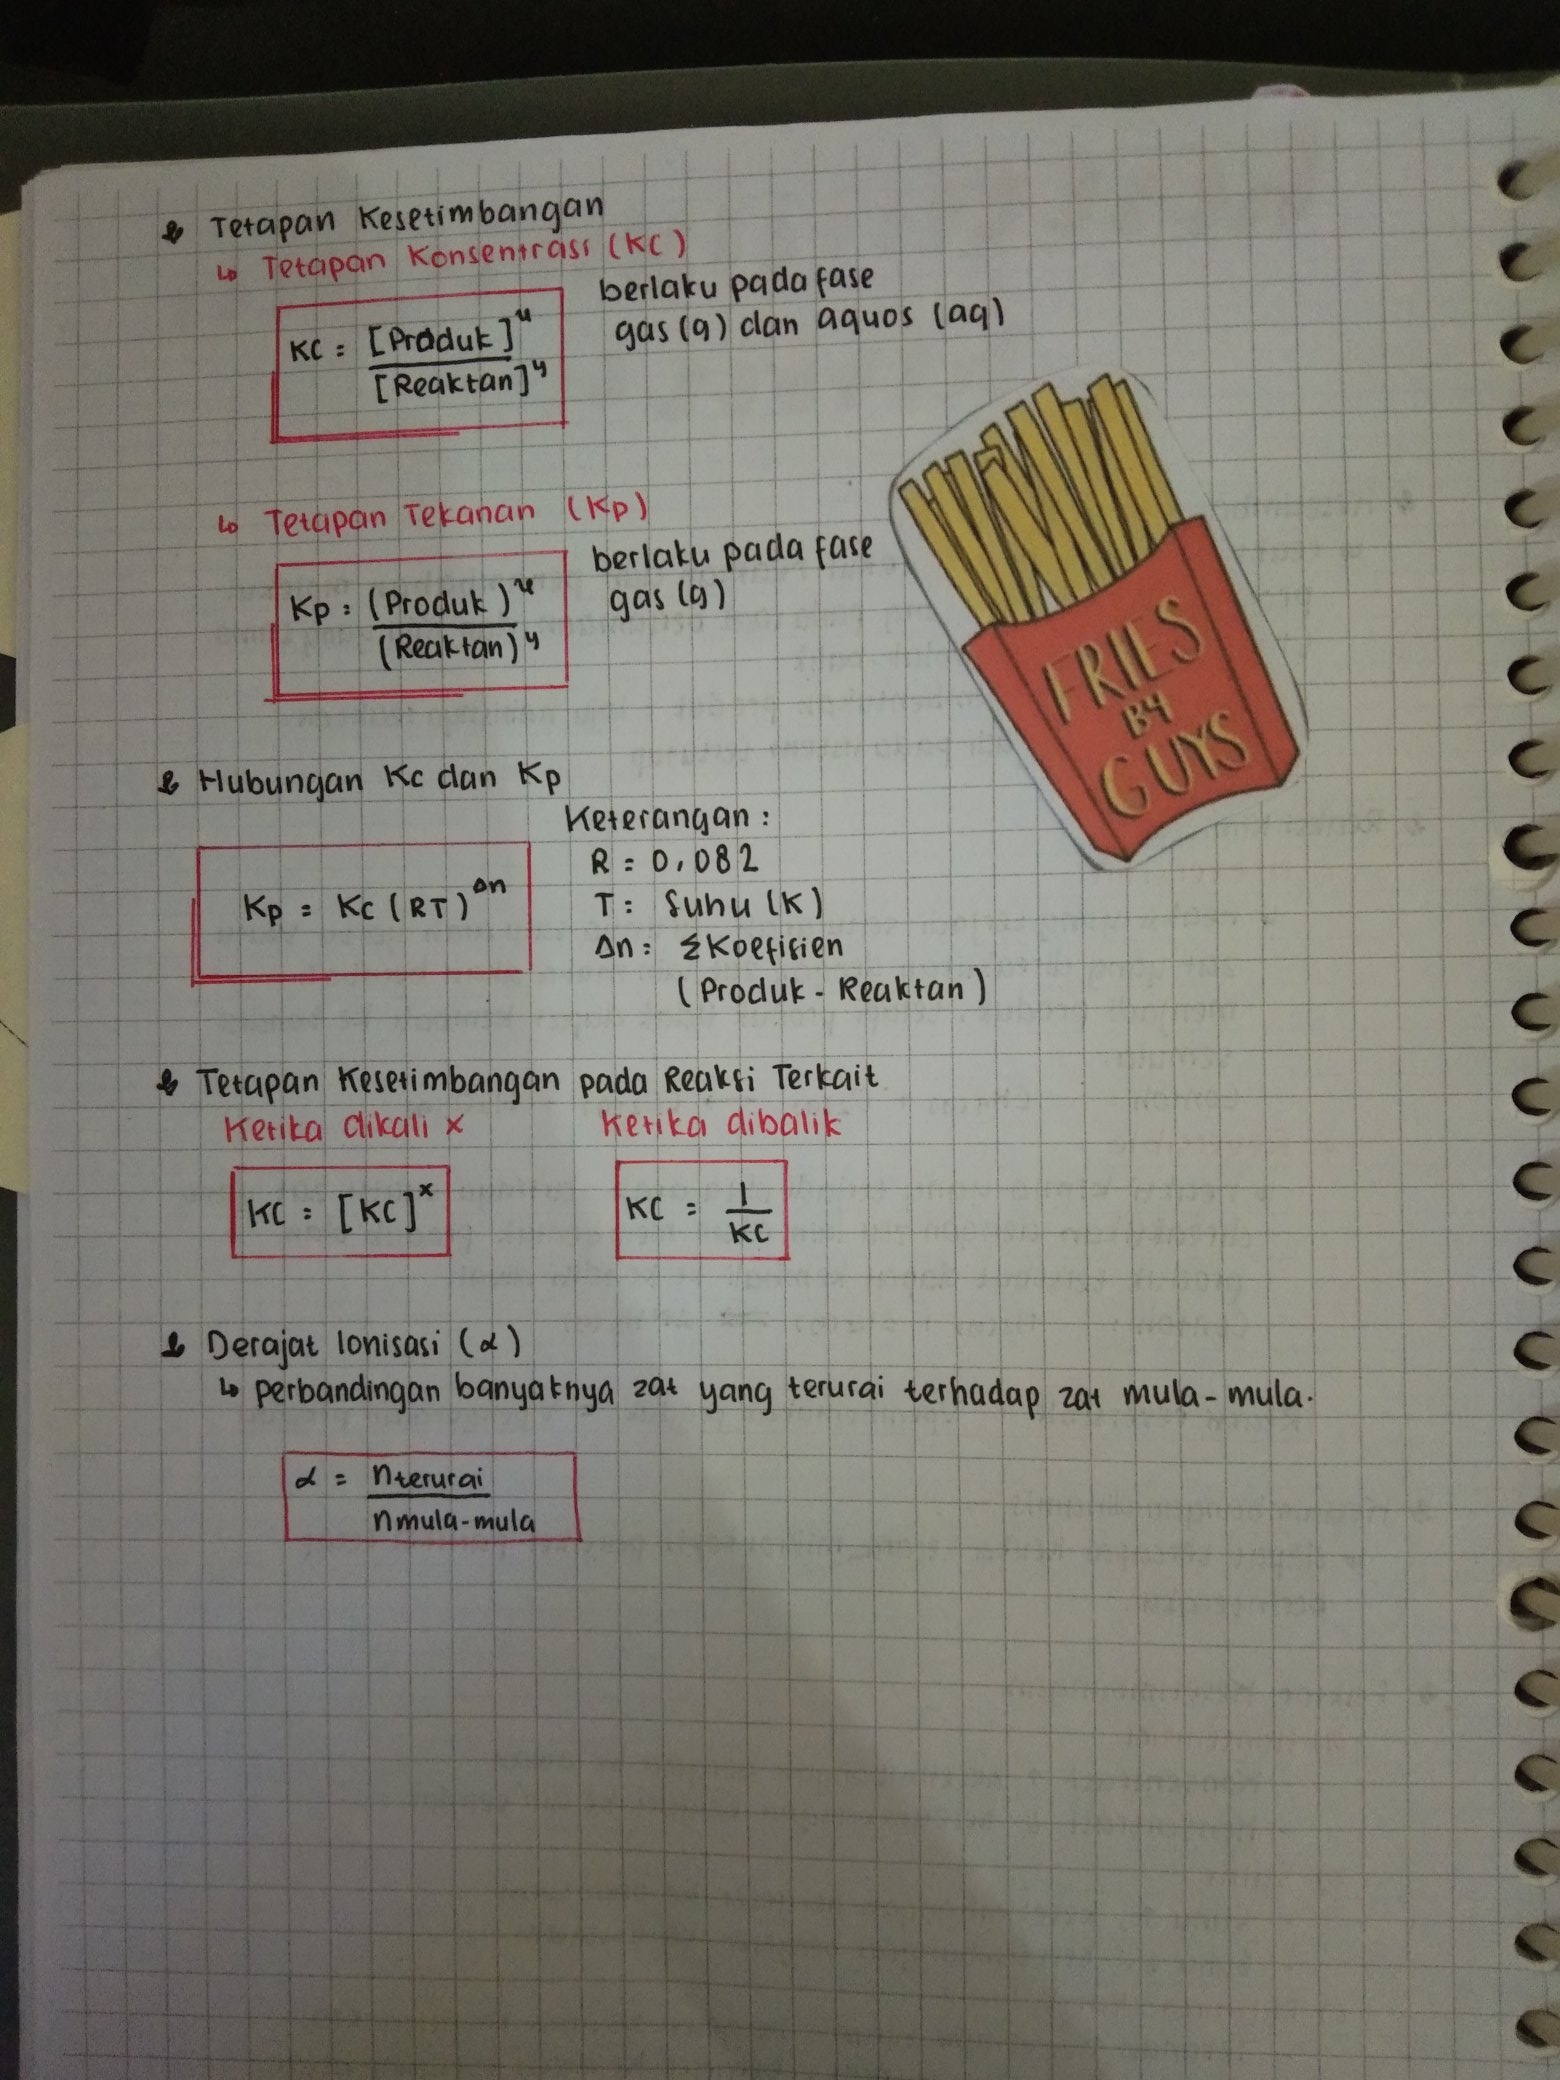 Tetapan Kesetimbangan
↳ Tetapan Konsentrasi (KC)
KC = [Produk]ˣ / [Reaktan]ʸ
berlaku pada fase
gas (g) dan aquos (aq)
↳ Tetapan Tekanan (Kp)
Kp = (Produk)ˣ / (Reaktan)ʸ
berlaku pada fase
gas (g)
FRIES
BY
GUYS
Hubungan Kc dan Kp
Kp = Kc (RT)^Δn
Keterangan :
R = 0,082
T = Suhu (K)
Δn = Σ Koefisien
(Produk - Reaktan)
Tetapan Kesetimbangan pada Reaksi Terkait
Ketika dikali x
KC = [KC]ˣ
Ketika dibalik
KC = 1 / KC
Derajat Ionisasi (α)
↳ perbandingan banyaknya zat yang terurai terhadap zat mula-mula.
α = n terurai / n mula-mula